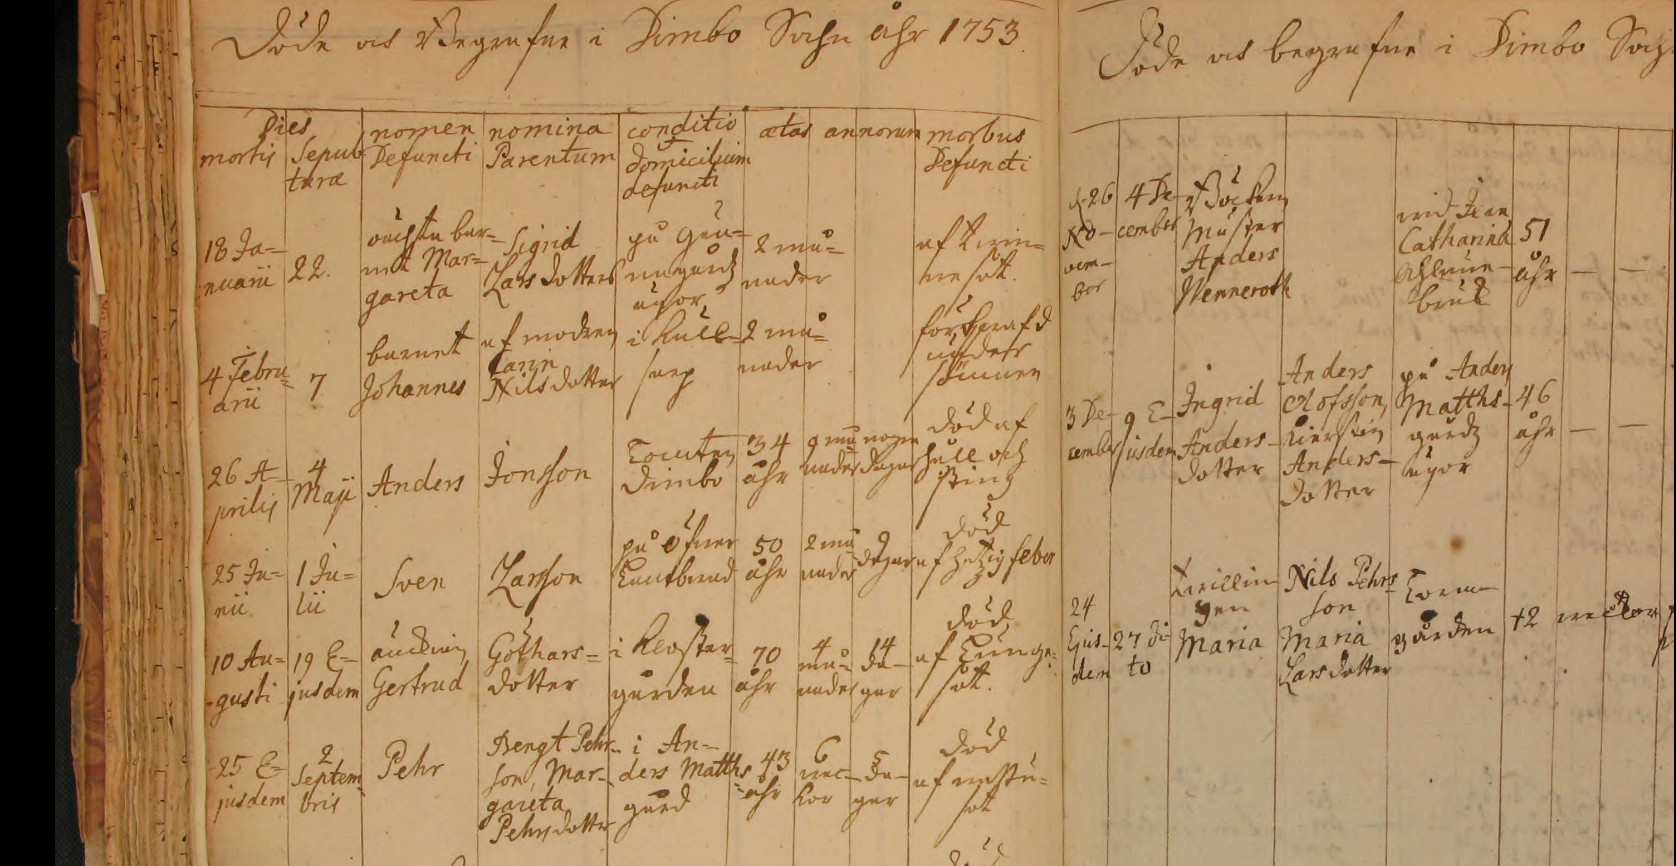 Döde och Begrafne i Dimbo Sochn åhr 1753.
Dies
mortis Sepul
turæ
nomen
Defuncti
nomina
Parentum
conditio
domicilium
defuncti
ætas annorum
morbus
Defuncti
18 Ja-
nuarii
22.
Mar-
gareta
Sigrid
Lars dotters
på
ägor
2 må-
nader
af
sot.
4 Febru-
arii
7
barnet
Johannes
af modren
Carin
Nils dotter
i
2 må-
nader
26 A-
prilis
4
Maji
Anders
Jonsson
Tomten
Dimbo
34
åhr
9 må
nader
nogra
dagar
död af
håll och
sting
25 Ju-
nii
1 Ju-
lii
Sven
Larsson
på öfver
50
åhr
2 må
nader
9
dagar
död
af hetzig feber
10 Au-
gusti
19 E-
jusdem
änckian
Gertrud
Göthars-
dotter
i Kloster-
gården
70
åhr
4
må-
nader
14
da-
gar
död
af Lunge-
sot.
25 E-
jusdem
2
Septem
bris
Pehr
Bengt Pehr-
son, Mar-
gareta
Pehrs dotter
i An-
ders Matths
gård
43
åhr
6
vec-
kor
5
da-
gar
död
af
sot
Döde och begrafne i Dimbo Soch
d. 26
No-
vem-
ber
4 De-
cember
Muster
Anders
Wenneroth
Catharina
51
åhr
3 De-
cember
9 E-
jusdem
Ingrid
Anders-
dotter
Anders
Olofsson,
Kierstin
Anders-
dotter
på Anders
Matths-
gårdz
ägor
46
åhr
24
Ejus-
dem
27 di-
to
Tvillin
gen
Maria
Nils Pehrs-
son
Maria
Lars dotter
gården
12 veckor